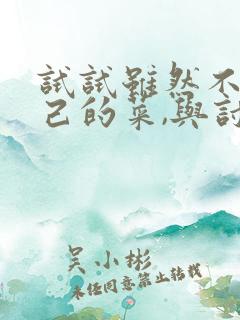 試試雖然不
己的菜,與討
吴小彬
未经同意禁止转载